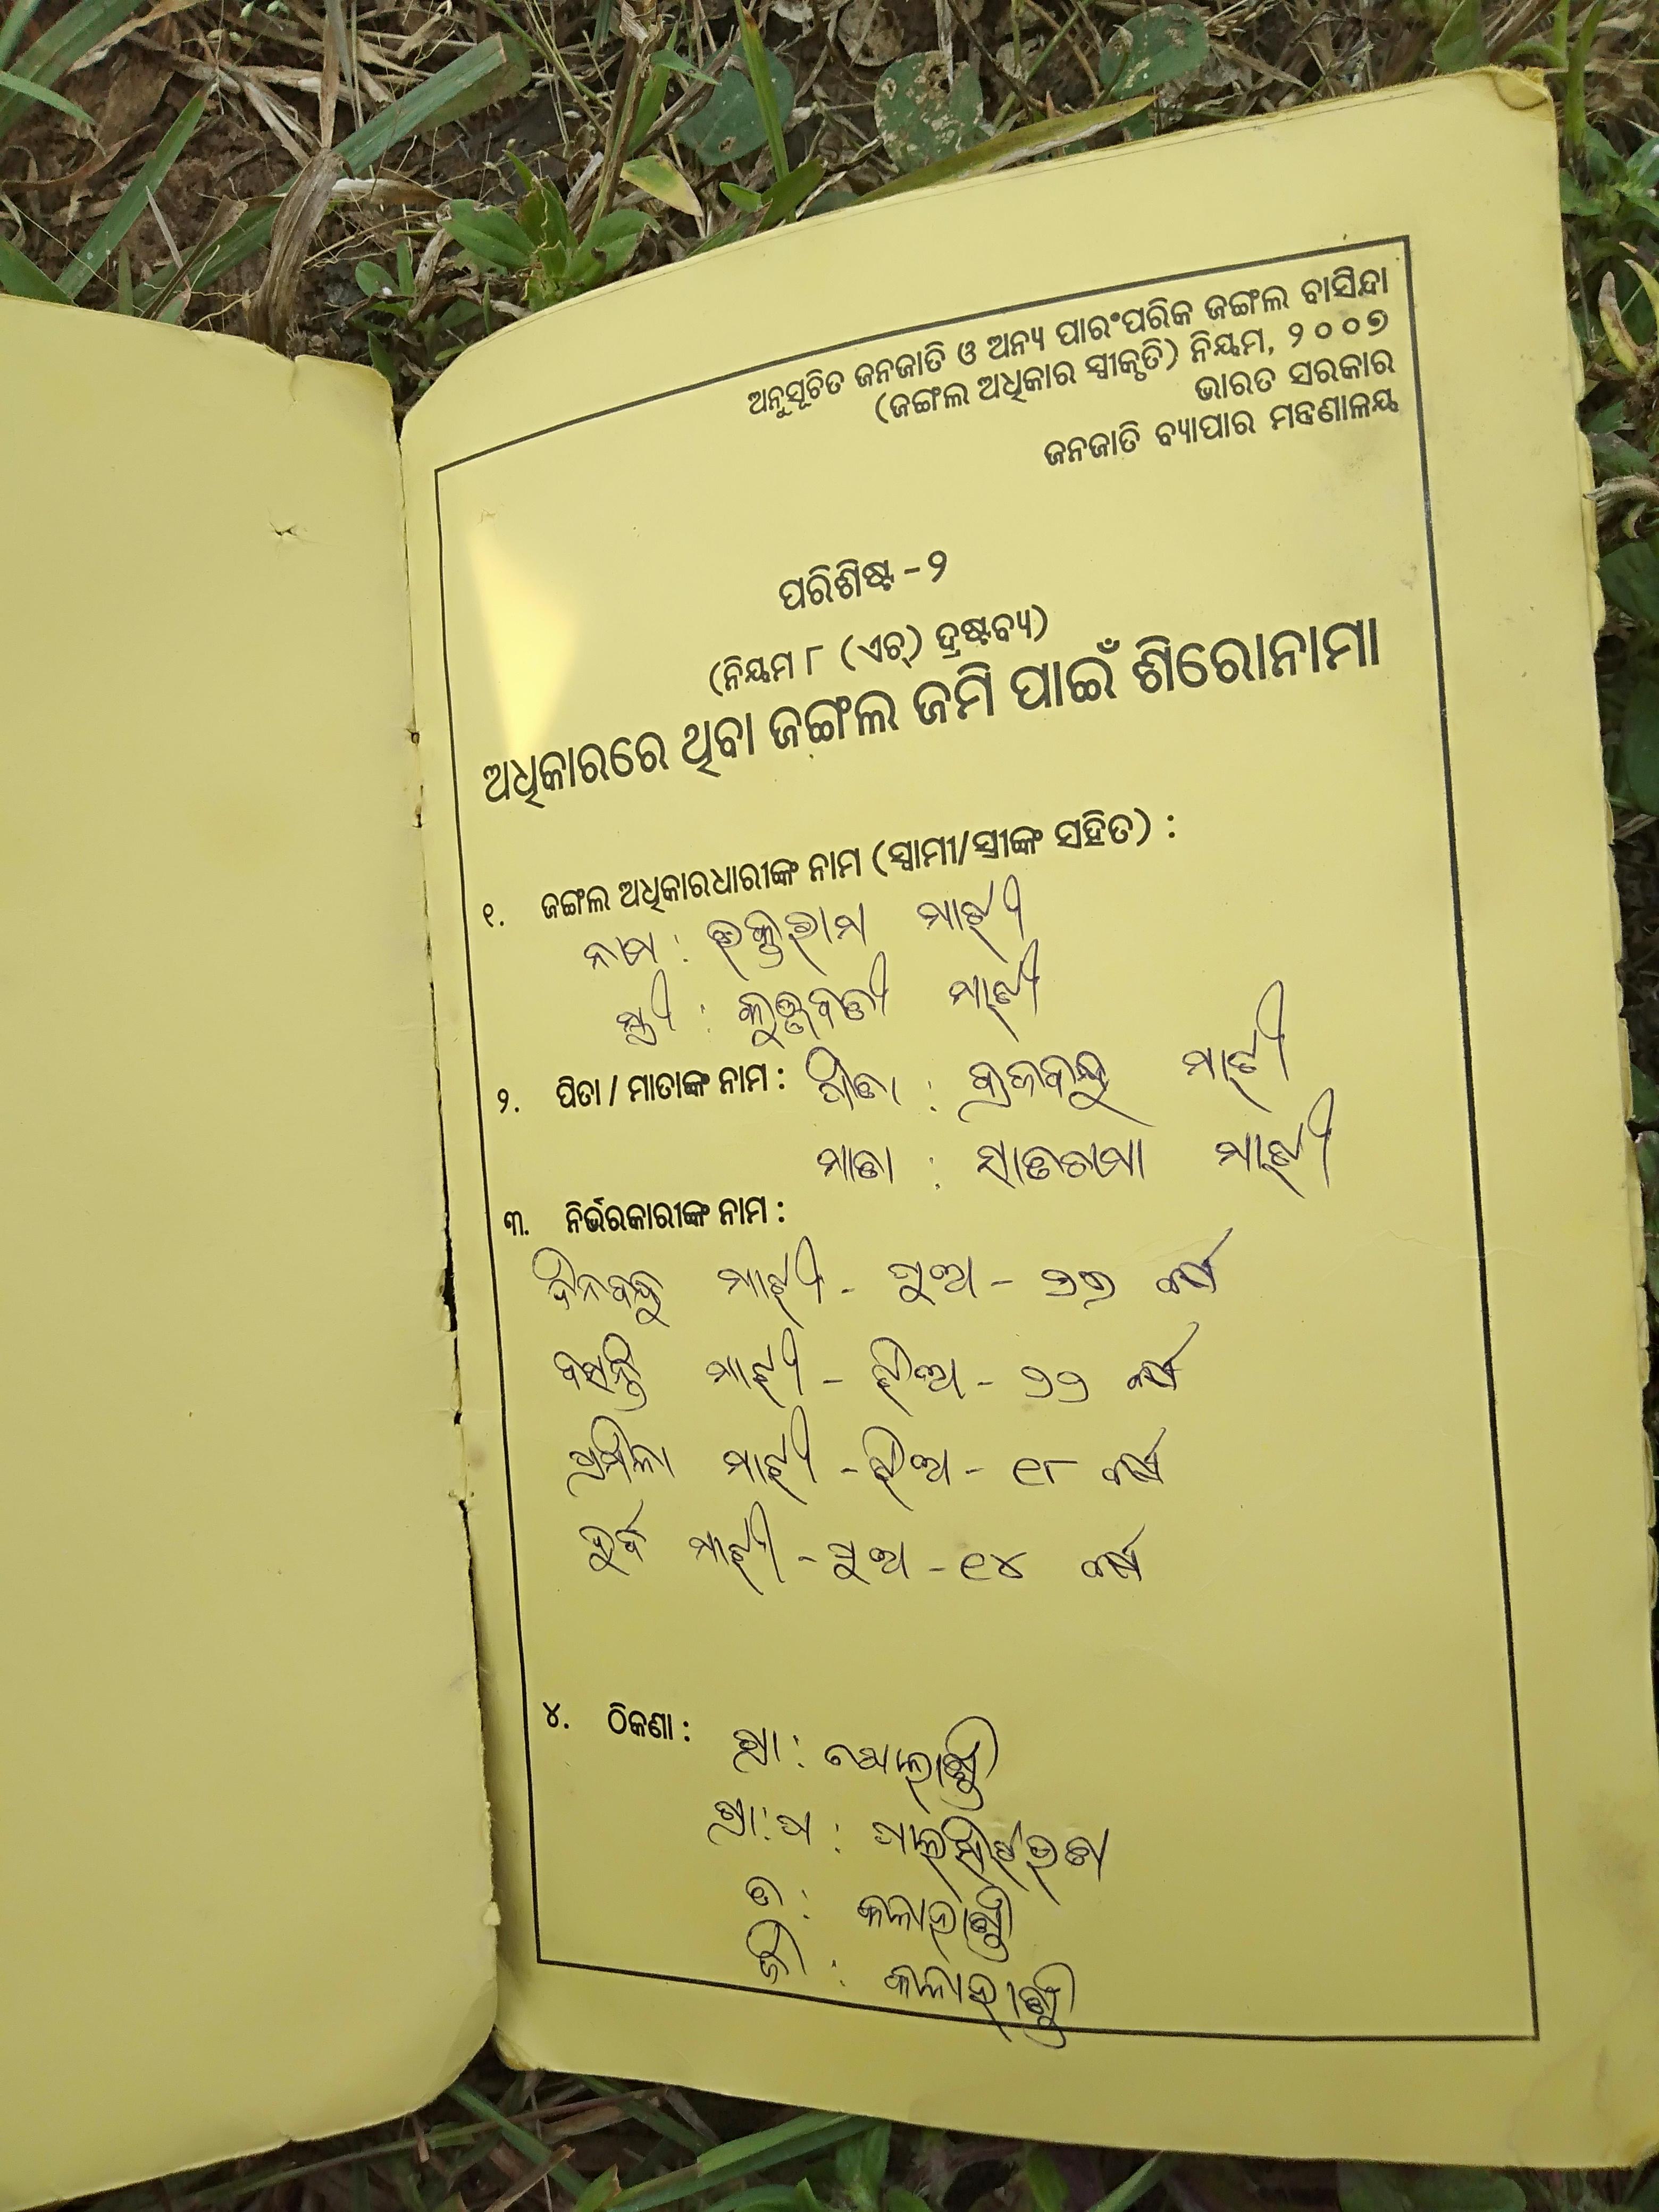 ଅନୁସୂଚିତ ଜନଜାତି ଓ ଅନ୍ୟ ପାରଂପରିକ ଜଙ୍ଗଲ ବାସିନ୍ଦା
(ଜଙ୍ଗଲ ଅଧିକାର ସ୍ୱୀକୃତି) ନିୟମ, ୨୦୦୭
ଭାରତ ସରକାର
ଜନଜାତି ବ୍ୟାପାର ମନ୍ତ୍ରଣାଳୟ
ପରିଶିଷ୍ଟ - ୨
(ନିୟମ ୮ (ଏଚ୍) ଦ୍ରଷ୍ଟବ୍ୟ)
ଅଧିକାରରେ ଥିବା ଜଙ୍ଗଲ ଜମି ପାଇଁ ଶିରୋନାମା
୧. ଜଙ୍ଗଲ ଅଧିକାରଧାରୀଙ୍କ ନାମ (ସ୍ୱାମୀ/ସ୍ତ୍ରୀଙ୍କ ସହିତ) :
ନାମ : ମାଝୀ
ସ୍ତ୍ରୀ : ମାଝୀ
୨. ପିତା / ମାତାଙ୍କ ନାମ : ପିତା : ବ୍ରଜବନ୍ଧୁ ମାଝୀ
ମାତା : ମାଝୀ
୩. ନିର୍ଭରକାରୀଙ୍କ ନାମ :
ଦୀନବନ୍ଧୁ ମାଝୀ - ପୁଅ - ବର୍ଷ
ବସନ୍ତି ମାଝୀ - ଝିଅ - ୨୨ ବର୍ଷ
ପ୍ରମିଳା ମାଝୀ - ଝିଅ - ୧୮ ବର୍ଷ
ମାଝୀ - ପୁଅ - ୧୪ ବର୍ଷ
୪. ଠିକଣା : ଗ୍ରା :
ଗ୍ରା : ପ :
ତ : କଳାହାଣ୍ଡି
ଜି : କଳାହାଣ୍ଡି